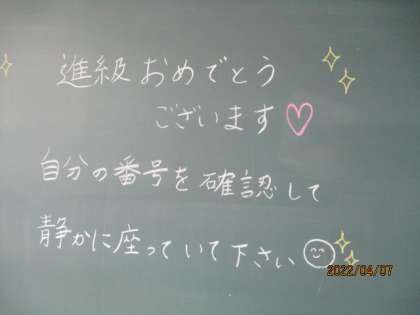 進級おめでとう
ございます♡
自分の番号を確認して
静かに座っていて下さい
2022/04/07